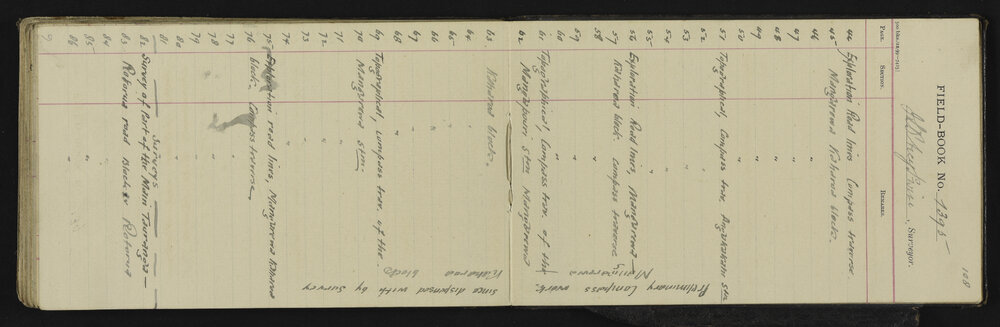 108
FIELD-BOOK No. 1395
, Surveyor.
PAGE. SECTION. REMARKS.
44 Exploration Road lines Compass traverse
45 Mangarewa Kaharoa blocks.
46 "
47 "
48 "
49 "
50 "
51 Topographical, Compass trav.
52 "
53 "
54 "
55 "
56 Exploration Road lines, Mangarewa
57 Kaharoa block. Compass traverse
58 "
59 "
60 "
61 Topographical, Compass trav. of the
62 Stm Mangarewa
63 Kaharoa block.
64 "
65 "
66 "
67 "
68 "
69 Topographical, compass trav. of the
70 Mangarewa Stm.
71 "
72 "
73 "
74 "
75 Exploration road lines, Mangarewa Kaharoa
76 block. Compass traverse
77 "
78 "
79 "
80 "
81 Surveys
82 Survey of Part of the Main Tauranga –
83 Rotorua road Block Rotorua
84 "
85 "
86 "
Preliminary Compass work.
Mangarewa
since dispensed with by Survey
Kaharoa blocks